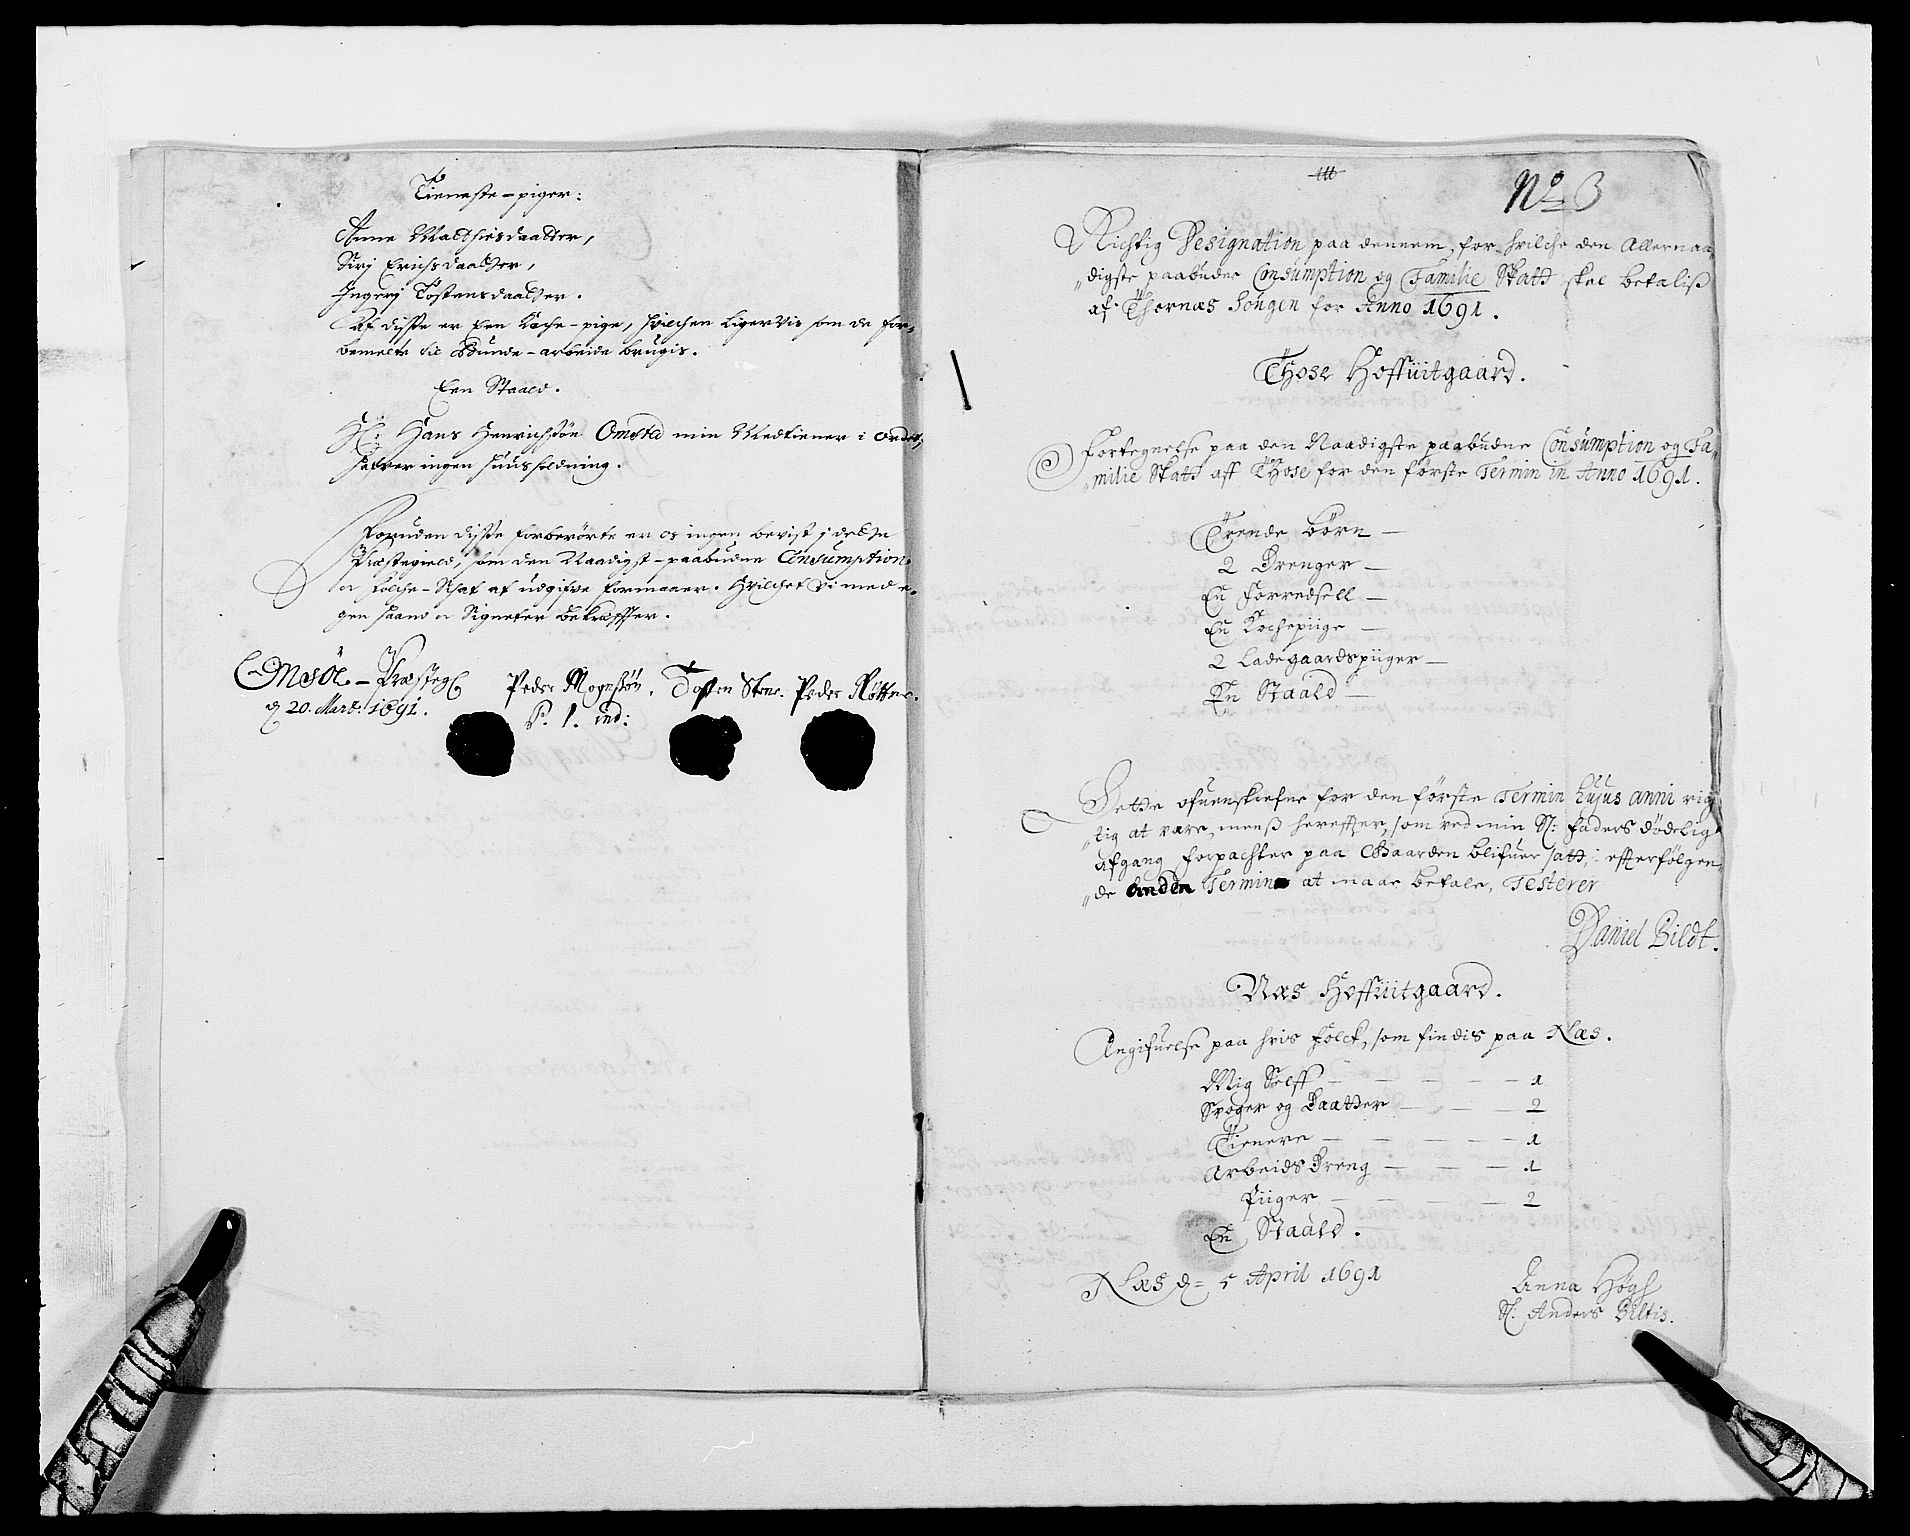 Tieneste-piger:
Anne Matthisdaatter,
Sirj Erichsdaatter,
Ingerj Tostensdaatter.
Af disse er Een Koche-pige, hvilchen ligervis som de for-
bemelte til Bunde-arbeide brugis.
Een Staald.
Hr: Hans Henrichsøn Omsted min Medtiener i ordet,
hafver ingen huusholdning.
Foruden disse forberørte er os ingen bevist i dette
Præstegield, som den Naadigst-paabudne Consumption
oc folche-Skat af udgifve formaaer. Hvilchet vi med e-
gen haand oc Signeter bekræffter.
Præsteg
d 20. Mart: 1691.
Peder Mognssøn. Tosten Peder
P. l. ind:
No 3
Richtig Designation paa dennem, for hvilche den Allernaa-
digste paabudne Consumption og Familie Skatt skal betaliss
af Thorsnæs Songen for Anno 1691.
Those Hoffuitgaard.
Fortegnelse paa den Naadigste paabudne Consumption og Fa-
milie Skatt aff Those for den første Termin in Anno 1691.
Trende børn —
2 Drenger —
En Forredsell —
En Kochepiige —
2 Ladegaardspiiger —
En Staald —
Dette ofuenskrefne for den første Termin hujus anni rig-
tig at være, menss hereffter, som ved min Sl: Faders dødelig
afgang forpachter paa Gaarden blifuer satt, efterfølgen-
de anden Termin at maae betale, Testerer
Daniel Bildt.
Næs Hoffuitgaard.
Angifuelse paa hvis Folck, som findis paa Næs.
Mig Selff — — — — 1
Svoger og Daatter — — — 2
Tienere — — — — 1
Arbeids Dreng — — — 1
Piiger — — — — 2
En Staald.
Næs d= 5 April 1691
Anna Høgh
Sl. Anders Biltis.